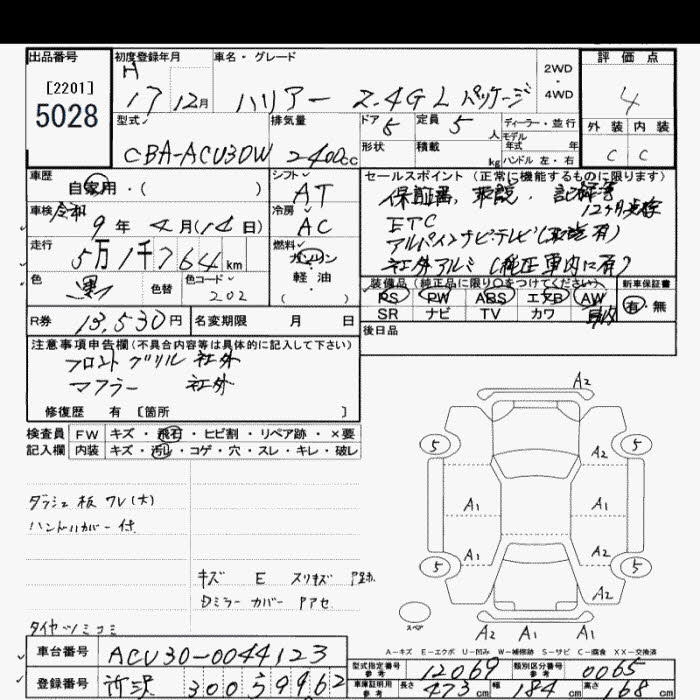 出品番号 初度登録年月 車名・グレード 評価点
[2201]
5028
H 17 12月 ハリアー 2.4G Lパッケージ 2WD・4WD 4
型式 排気量 ドア 5 定員 5人 ディーラー・並行 外装 内装
モデル年式 年
CBA-ACU30W 2400cc 形状 積載 kg ハンドル 左・右 C C
車歴 シフト セールスポイント (正常に機能するものに限ります)
自家用・( ) AT 保証書, 取説, 記録簿
12ヶ月点検
車検 令和 9年 4月(14日) 冷房 AC ETC
走行 5万1千764km 燃料 ガソリン アルパインナビテレビ(取説有)
軽・油 社外アルミ(純正車内に有)
( )
色 黒 色替 色コード 202 装備品 (純正品に限り○をつけてください) 新車保証書
PS PW ABS エアB AW 有・無
SR ナビ TV カワ 車内
R券 13,530円 名変期限 月 日 後日品
注意事項申告欄(不具合内容等は具体的に記入して下さい)
フロントグリル 社外
マフラー 社外
修復歴 有 [箇所 ]
検査員 FW キズ・飛石・ヒビ割・リペア跡・×要
記入欄 内装 キズ・汚れ・コゲ・穴・スレ・キレ・破レ
A2
5 5
A2
A1 A1
A1 A2
5 5
A2
スペア
A2 A1 A1
ダッシュ板 ワレ(大)
ハンドルカバー付
キズ E スリキズ
Dミラーカバー
タイヤツミコミ
A-キズ E-エクボ U-凹み W-補修跡 S-サビ C-腐食 XX-交換済
車台番号 ACU30-0044123
登録番号 所沢 300 59962
型式指定番号 参考 12069 類別区分番号 参考 0065
車庫証明用 参考 長さ 473cm 幅 184cm 高さ 168cm